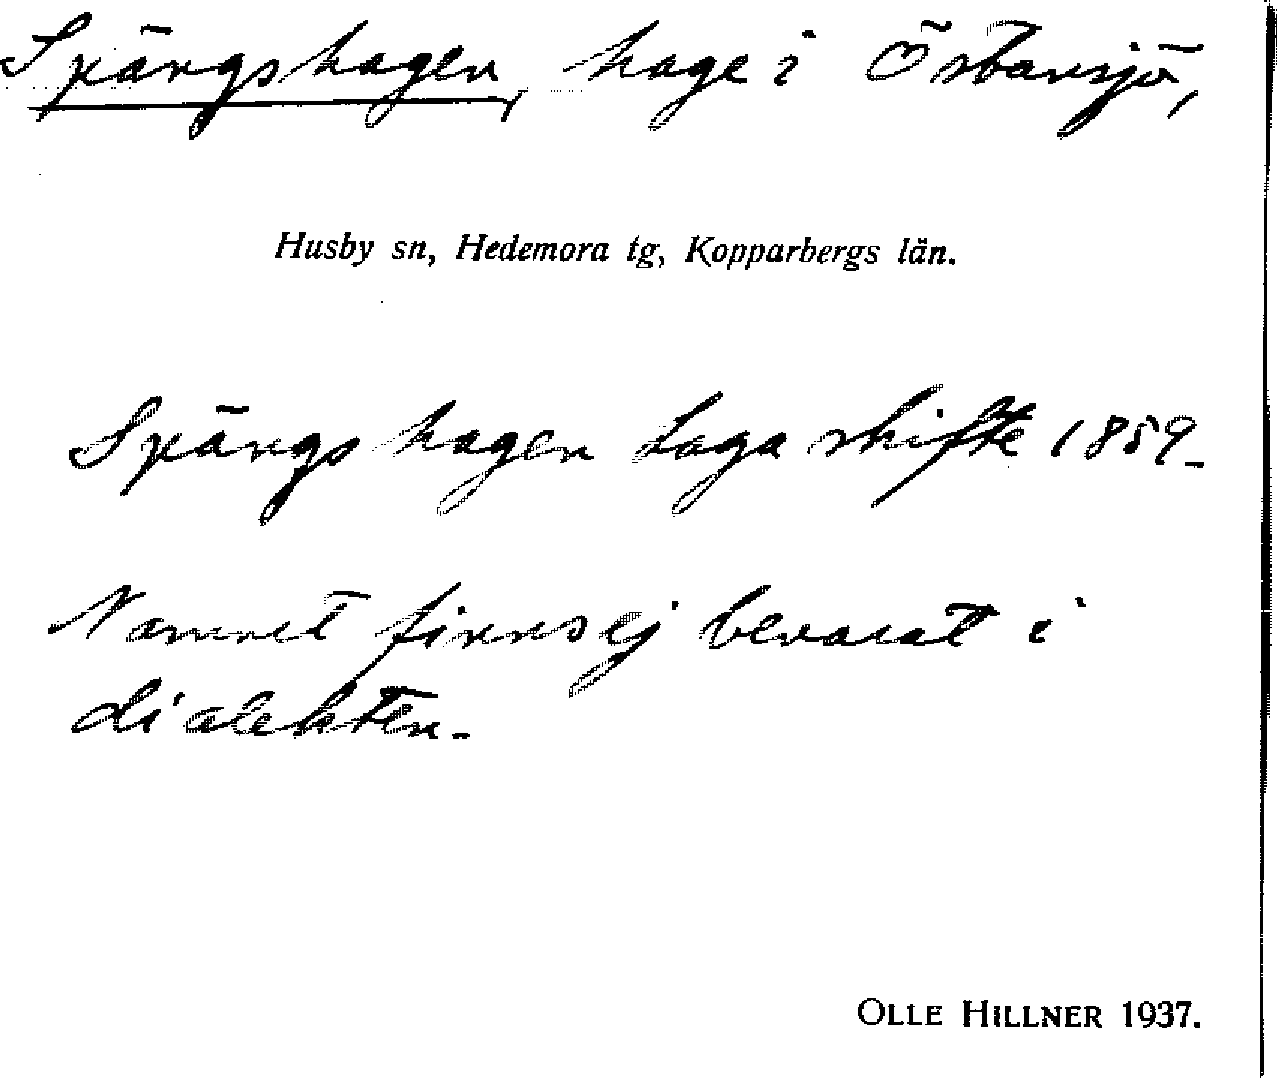 Spängshagen, hage i Östansjö,
Husby sn, Hedemora tg, Kopparbergs län.
Spängshagen Laga skifte 1859.
Namnet finns ej bevarat i
dialekten.
OLLE HILLNER 1937.